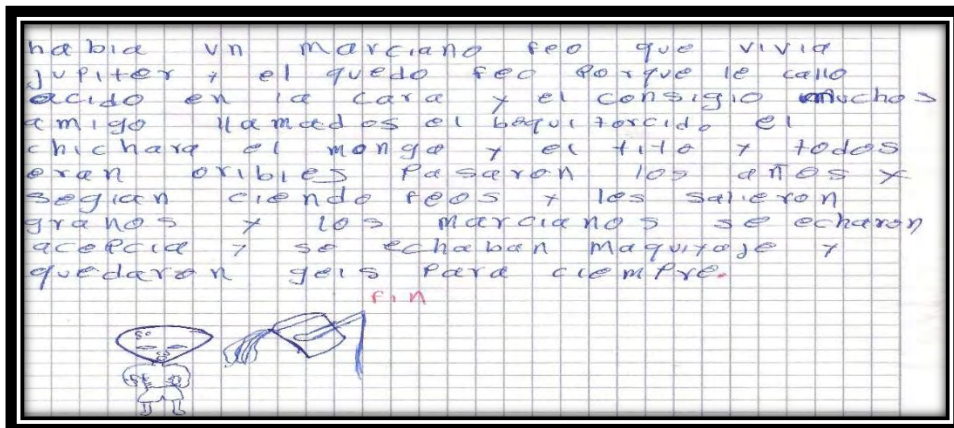 habia un marciano feo que vivia
jupiter y el quedo feo porque le callo
acido en la cara y el consigio muchos
amigo llamados el boquitorcido el
chichara el mongo y el tito y todos
eran oribles pasaron los años y
segian ciendo feos y les salieron
granos y los marcianos se echaron
acepcia y se echaban maquiyaje y
quedaron geis para ciempre.
fin